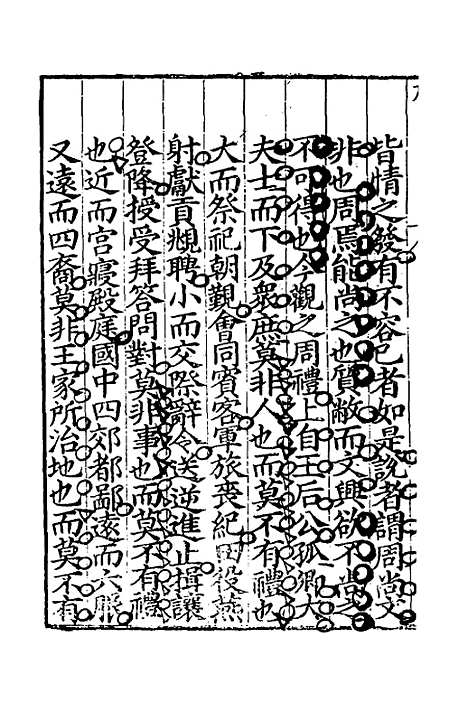 皆情之發有不容已者如是說者謂周尚文
非也周焉能尚之也質敝而文興欲不尚文
不可得也今觀之周禮上自王后公孤卿大
夫士而下及衆庶莫非人也而莫不有禮也
大而祭祀朝覲會同賓客軍旅喪紀田役燕
射獻貢覜聘小而交際辭令送逆進止揖讓
登降授受拜答問對莫非事也而莫不有禮
也近而宮寢殿庭國中四郊都鄙遠而六服
又遠而四裔莫非王家所治地也而莫不有